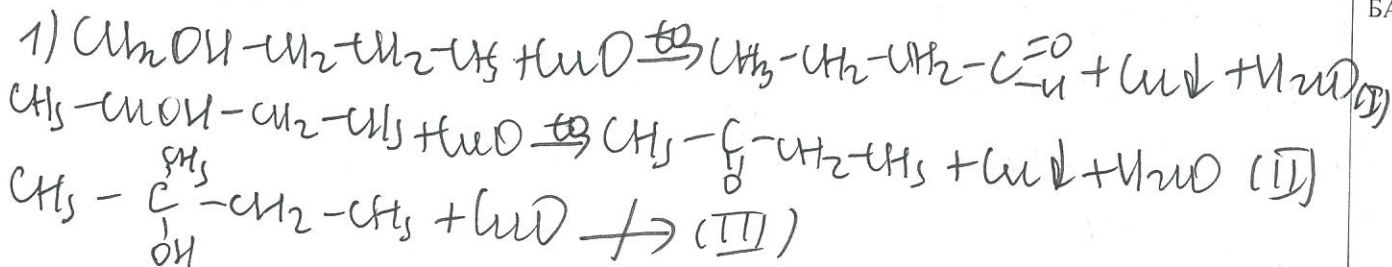 БА
1) CH₂OH-CH₂-CH₂-CH₃ + CuO →t° CH₃-CH₂-CH₂-C(=O)(-H) + Cu↓ + H₂O (I)
CH₃-CHOH-CH₂-CH₃ + CuO →t° CH₃-C(=O)-CH₂-CH₃ + Cu↓ + H₂O (II)
CH₃
CH₃-C-CH₂-CH₃ + CuO ↛ (III)
OH